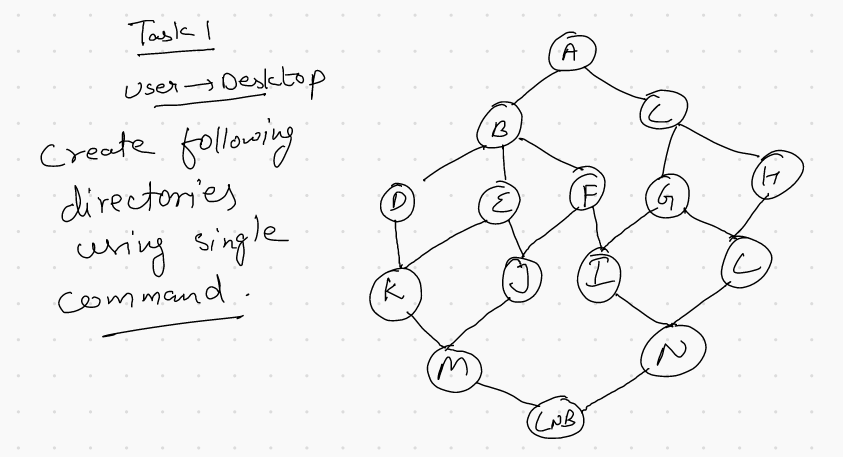 Task 1
User → Desktop
Create following
directories
using single
command.
A
B
C
D
E
F
G
H
K
J
I
L
M
N
LNB